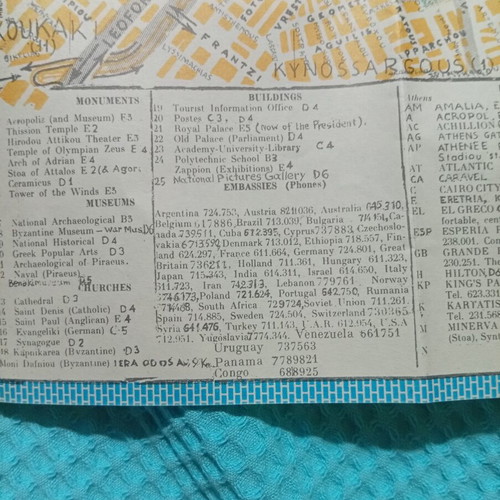 OUKAKI
(11)
LEOFOR
FRANTZI
LYSIMAHIAS
KYNOSSARGOUS (1)
MONUMENTS
Acropolis (and Museum) E3
Thission Temple E2
Hirodou Attikou Theater E3
Temple of Olympian Zeus E4
Arch of Adrian E4
Stoa of Attalos E2 (& Agor.
Ceramicus D1
Tower of the Winds E3
MUSEUMS
National Archaeological B3
Byzantine Museum - War Mus D6
National Historical D4
Greek Popular Arts D3
Archaeological of Piraeus.
Naval (Piraeus)
CHURCHES
Cathedral D2
Saint Denis (Catholic) D4
Saint Paul (Anglican) E4
Evangeliki (German) C5
Synagogue D2
Kapnikarea (Byzantine) D3
Moni Dafniou (Byzantine) IERA ODOS
BUILDINGS
19 Tourist Information Office D4
20 Postes C3, D4
21 Royal Palace E5 (Now of the President).
22 Old Palace (Parliament) D4
23 Academy-University-Library C4
24 Polytechnic School B3
Zappion (Exhibitions) E4
25 National Pictures Gallery D6
EMBASSIES (Phones)
Argentina 724.753, Austria 821036, Australia
Belgium 617886, Brazil 713.039, Bulgaria
nada 739511, Cuba 612.395, Cyprus 737883 Czechoslo-
vakia 6713592 Denmark 713.012, Ethiopia 718.557, Fin-
land 624.297, France 611.664, Germany 724.801, Great
Britain 736211, Holland 711.361, Hungary 611.323,
Japan 715.343, India 614.311, Israel 614.650, Italy
611.723, Iran 742.313, Lebanon 779761, Norway
Poland 721.624, Portugal 642.750, Rumania
South Africa 729724, Soviet Union 711.261,
Spain 714.885, Sweden 724.504, Switzerland 730365
Syria 641.476, Turkey 711.143, U.A.R. 612.954, U.S.A
712.951, Yugoslavia 7774.344, Venezuela 661751
Uruguay 737563
Panama 7789821
Congo 688925
Athens
AM AMALIA,
A ACROPOL,
AC ACHILLION
AG ATHENS G
AP ATHENEE
Stadiou st
AT ATLANTIC
CA CARAVEL
C CAIRO CITY
E ERETRIA, K
EL EL GRECO
fortable, cen
ESP ESPERIA P
238.001. Com
GB GRANDE
230.251. The
H HILTON,
KP KING'S PA
Tel. 623.2
K KARYATIS
Tel. 231.568
M MINERVA
(Stoa), Synt
N